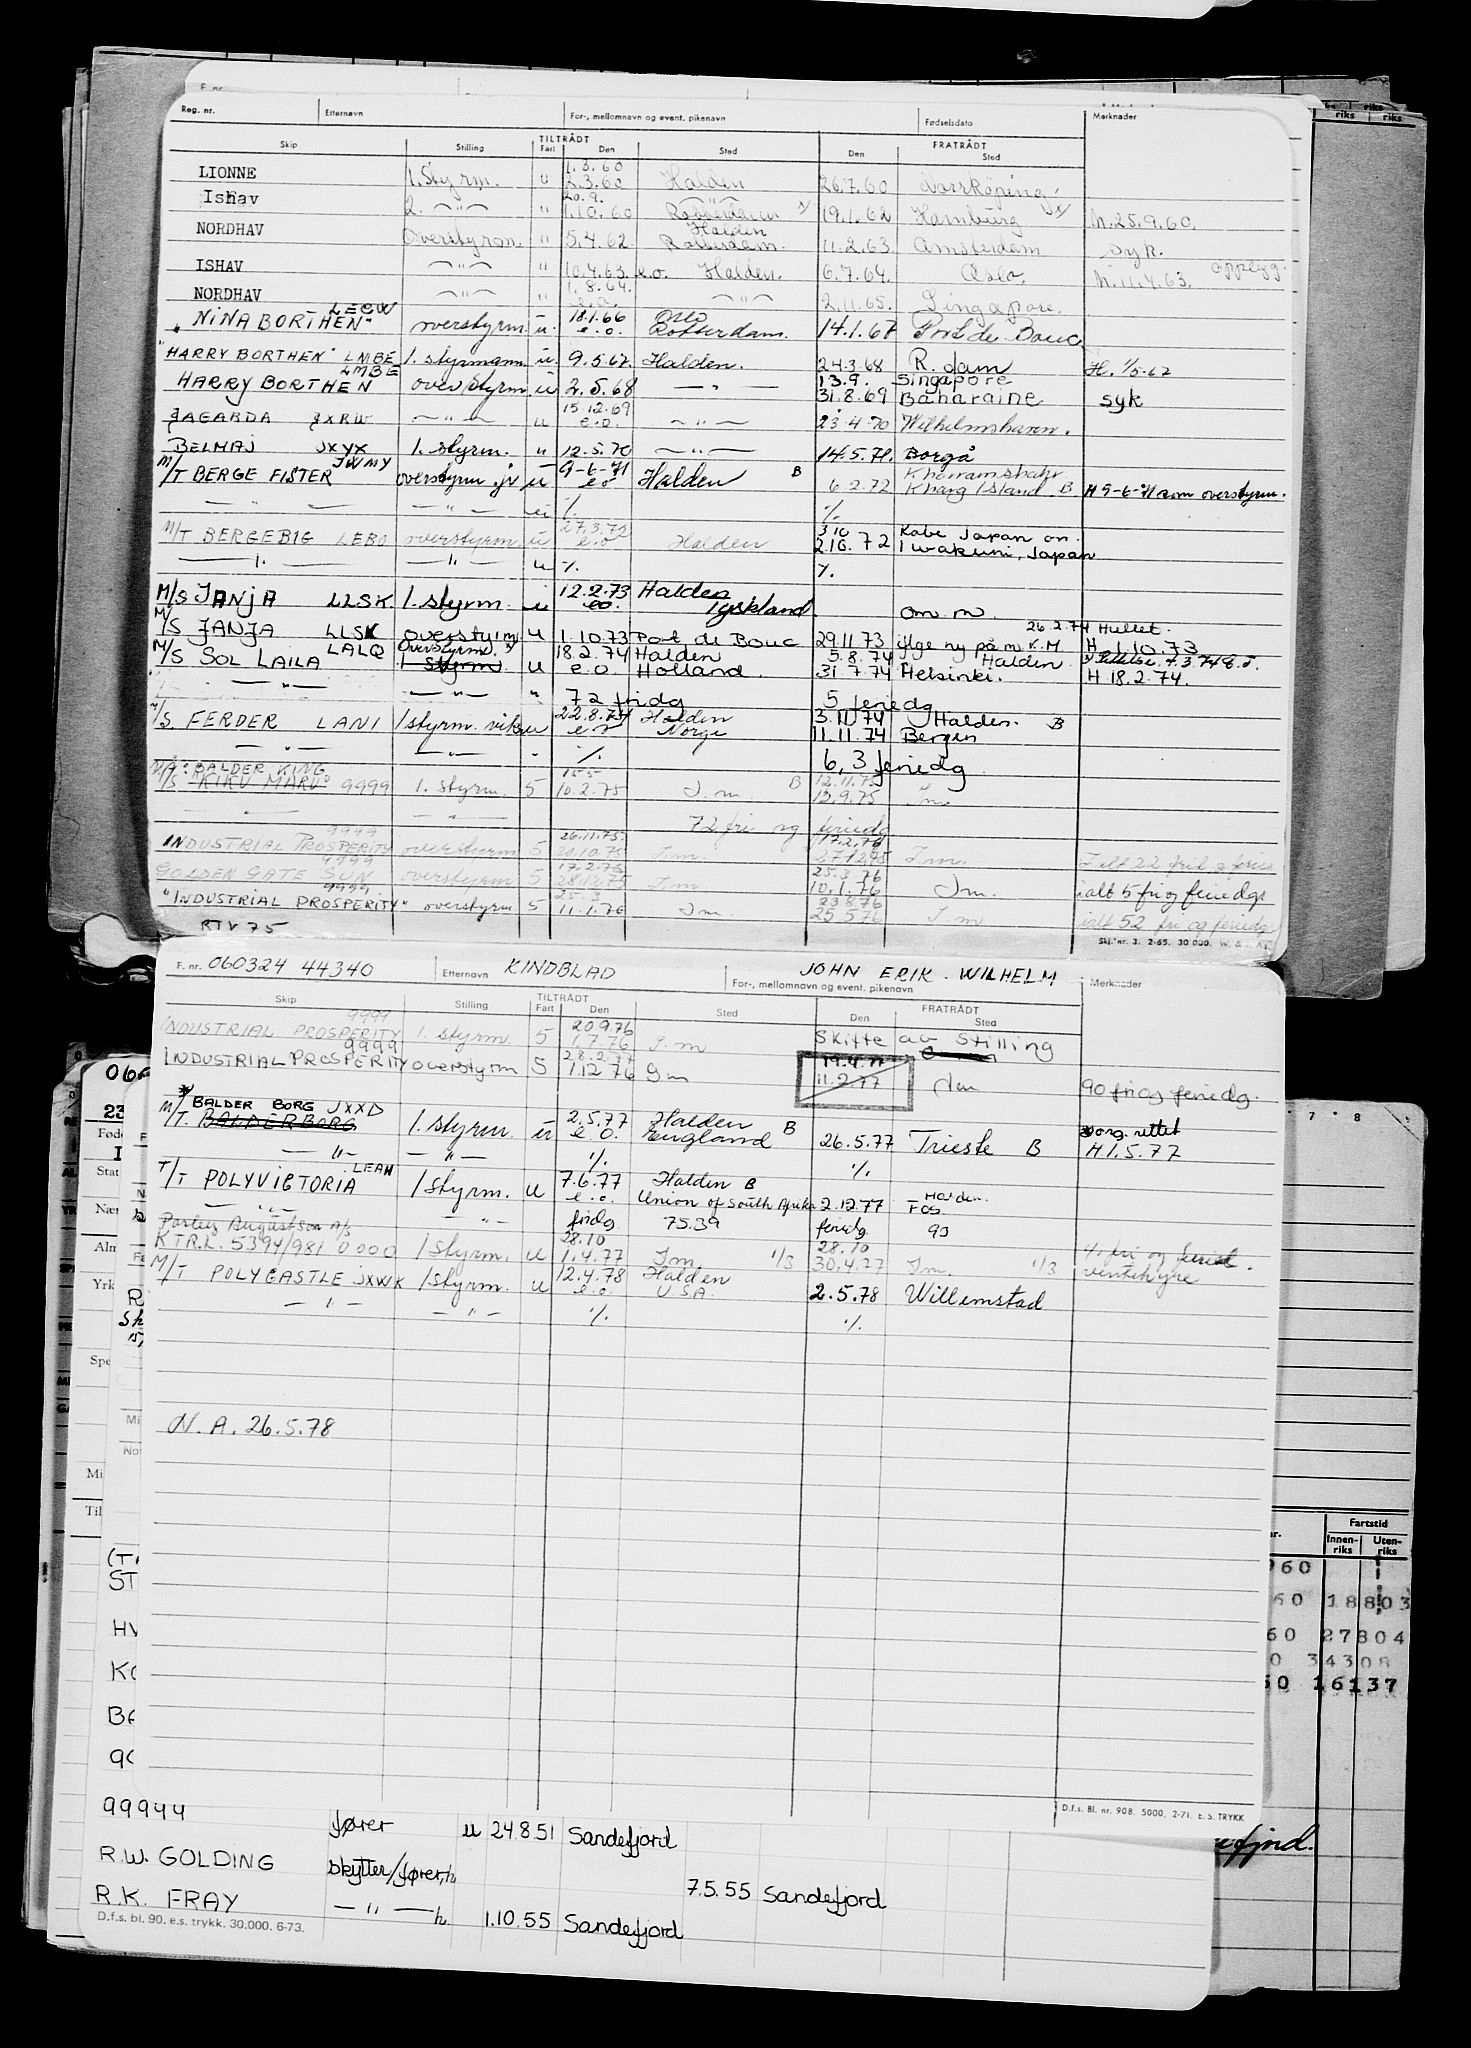 Reg. nr. Etternavn For-, mellomnavn og event. pikenavn Fødselsdato Merknader
Skip Stilling TILTRÅDT Fart Den Sted Den FRATRÅDT Sted
LIONNE 1. Styrm. u 1.3.60 2.3.60 Halden 26.7.60 Norrköping
Ishav 2. —"— " 20.9. 1.10.60 Rotterdam 19.1.62 Hamburg h. 25.9.60.
NORDHAV Overstyrm. " 5.4.62. Halden Rotterdam. 11.2.63. Amsterdam syk.
ISHAV —"— " 10.4.63. e.o. Halden. 6.7.64. Oslo opplegg. h. 11.4.63.
NORDHAV —"— " 1.8.64. e.o. —"— 2.11.65. Singapore.
"NINA BORTHEN" LECW overstyrm. u. 18.1.66 e.o. Oslo Rotterdam. 14.1.67 Port de Bouc
"HARRY BORTHEN" LMBE 1. styrmann u. 9.5.67. Halden. 24.3.68 R.dam H. 1/5-67
HARRY BORTHEN LMBE overstyrm u 2.5.68 —"— 13.9. Singapore 31.8.69 Baharaine syk
JAGARDA JXRW —"— u 15.12.69 e.o. —"— 23.4.70 Wilhelmshaven.
BELMAJ JXYX 1. styrm. u 12.5.70 —"— 14.5.71. Borgå
M/T BERGE FISTER JWMY overstyrm. jr u 9-6-71 e.o Halden B 6.2.72 Khorramshahr Kharg Island B H 9-6-71 som overstyrm.
—"— —"— u ./. ./.
M/T BERGEBIG LEBO overstyrm u 27.3.72 e.o Halden 3.10 2.10.72 Kobe Japan on. Iwakuni, Japan
—"— —"— u ./. ./.
M/S JANJA LLSK. 1. styrm. u 12.2.73 e.o. Halden Tyskland om m
M/S JANJA LLSK overstyrm u 1.10.73 Port de Bouc 29.11.73 26.2.74 Hullet. H. 1.10.73
M/S SOL LAILA LALQ Overstyrm. 1 styrm. u 18.2.74 e.o. Halden Holland. 5.8.74 31.7.74 Halden Helsinki. H 18.2.74.
—"— —"— " 72 fridg 5 feriedg
M/S FERDER LANI 1 styrm. vik u 22.8.74 e.o Halden Norge 3.11.74 11.11.74 Halden. B Bergen
—"— —"— - ./. 6,3 feriedg
BALDER KING
M/S "KIKU MARU" 9999 1. styrm. 5 15.5 10.2.75 I.m B 12.11.75 13.9.75 I.m.
—"— 72 fri og feriedg
INDUSTRIAL PROSPERITY 9999 overstyrm 5 26.11.75 I.m. 17.2.76 I.m. I alt 22 frid. og ferie
GOLDEN GATE SUN 9999 overstyrm 5 17.2.76 28.12.75 I.m 25.3.76 10.1.76 I.m. ialt 5 fri og feriedgr
"INDUSTRIAL PROSPERITY" 9999 overstyrm. 5 25.3 11.1.76 I.m 23.8.76 25.5.76 I.m ialt 52 fri og feriedg
RTV 75 Skj. nr. 3. 2-65. 30 000. W. &
F. nr. 060324 44340 Etternavn KINDBLAD JOHN ERIK. WILHELM For-, mellomnavn og event. pikenavn Merknader
Skip Stilling TILTRÅDT Fart Den Sted Den FRATRÅDT Sted
INDUSTRIAL PROSPERITY 9999 1. styrm. 5 20.9.76 1.7.76 I.m Skifte av stilling
INDUSTRIAL PROSPERITY 9999 overstyrm 5 28.2.77 1.12 76 I m 19.4.77 11.2.77 I m 90 fri og feriedg.
M/T. BALDER BORG JXXD BALDERBORG 1. styrm. u 2.5.77 e.o. Halden England B 26.5.77 Trieste B org. rettet H 1.5.77
—"— —"— ./. ./.
T/T POLYVICTORIA LEAH 1 styrm. u 7.6.77 e.o. Halden B Union of South Afrika 2.12.77 Halden. Fos
—"— —"— fridg. 75.39 feriedg. 93
Partley Augustson A/S
K TR.L. 5394/981 0000 1 styrm. u 28.10 1.4.77 I.m 1/3 28.10 30.4.77 I.m. 1/3 4. fri og feried. ventehyre
M/T POLYCASTLE JXWK 1 styrm. u 12.4.78 e.o. Halden U.S.A. 2.5.78 Willemstad
—"— —"— ./. ./.
N.A. 26.5.78
D.f.s. Bl. nr. 90B. 5000. 2-71. E.S. TRYKK
Fartstid
Innen-riks Uten-riks
960
60 18803
60 27804
0 34308
60 16137
99944 fører u 24.8.51 Sandefjord
R.W. GOLDING skytter/fører, h 7.5.55 Sandefjord
R.K. FRAY —"— h. 1.10.55 Sandefjord
D.f.s. bl. 90. e.s. trykk. 30.000. 6-73.